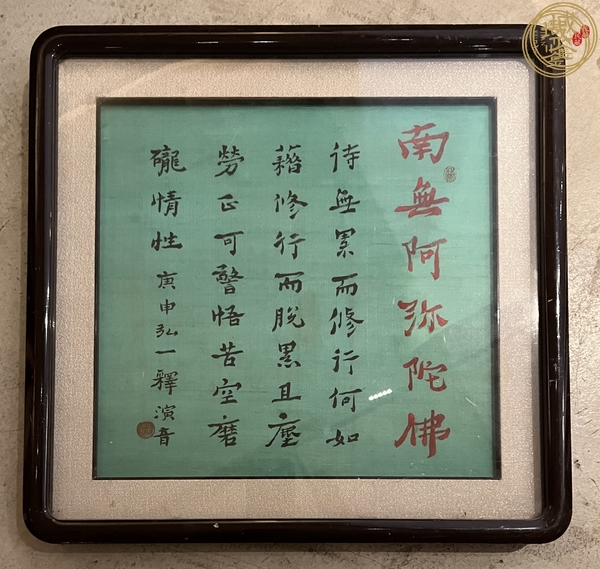 南無阿弥陀佛
待無累而修行何如
藉修行而脫累且塵
勞正可警悟苦空磨
礲情性
庚申弘一釋演音